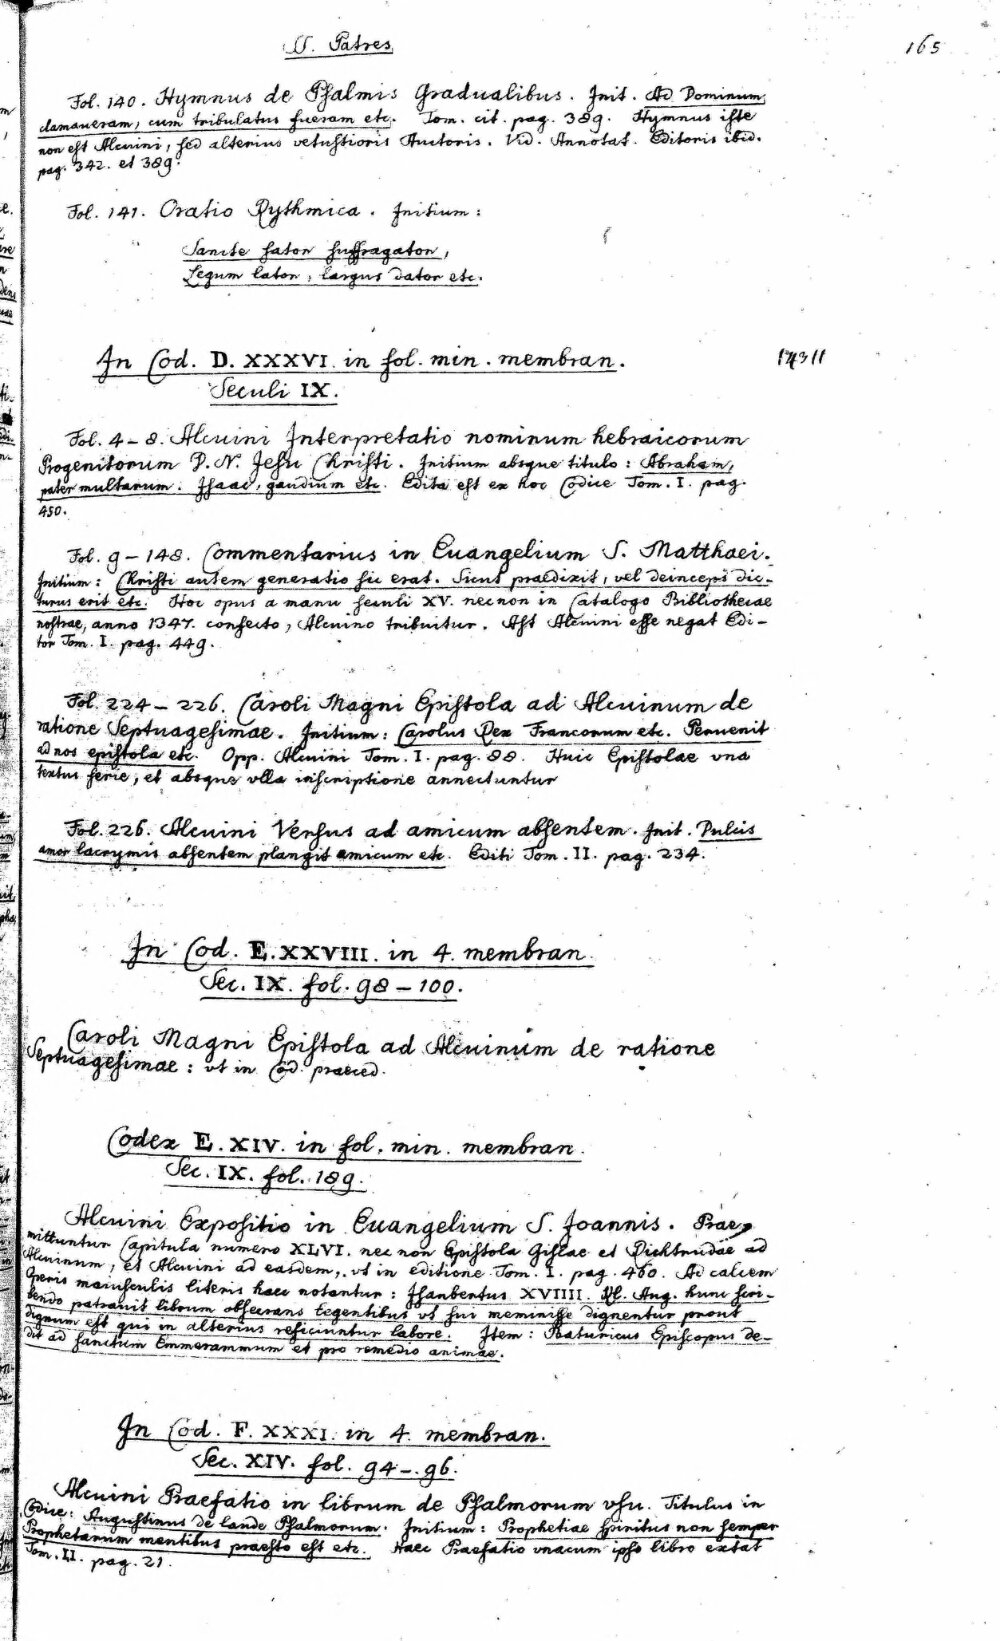 SS. Patres
165
Fol. 140. Hymnus de Psalmis Gradualibus. Init. Ad Dominum,
clamaueram, cum tribulatus fueram etc. Tom. cit. pag. 389. Hymnus iste
non est Alcuini, sed alterius vetustioris Auctoris. Vid. Annotat. Editoris ibid.
pag. 342. et 389.
Fol. 141. Oratio Rythmica. Initium:
Sancte sator suffragator,
Legum lator, largus dator etc.
In Cod. D. XXXVI. in fol. min. membran.
14311
Seculi IX.
Fol. 4–8. Alcuini Interpretatio nominum hebraicorum
Progenitorum D. N. Jesu Christi. Initium absque titulo: Abraham,
pater multarum. Isaac, gaudium etc. Edita est ex hoc Codice Tom. I. pag.
450.
Fol. 9–148. Commentarius in Euangelium S. Matthaei.
Initium: Christi autem generatio sic erat. Sicut praedixit, vel deinceps dic-
turus erit etc. Hoc opus a manu seculi XV. nec non in Catalogo Bibliothecae
nostrae, anno 1347. confecto, Alcuino tribuitur. Ast Alcuini esse negat Edi-
tor Tom. I. pag. 449.
Fol. 224–226. Caroli Magni Epistola ad Alcuinum de
ratione Septuagesimae. Initium: Carolus Rex Francorum etc. Peruenit
ad nos epistola etc. Opp. Alcuini Tom. I. pag. 88. Huic Epistolae vna
textus serie, et absque vlla inscriptione annectuntur
Fol. 226. Alcuini Versus ad amicum absentem. Init. Dulcis
amor lacrymis absentem plangit amicum etc. Editi Tom. II. pag. 234.
In Cod. E. XXVIII. in 4. membran.
Sec. IX. fol. 98–100.
Caroli Magni Epistola ad Alcuinum de ratione
Septuagesimae: vt in Cod. praeced.
Codex E. XIV. in fol. min. membran.
Sec. IX. fol. 189.
Alcuini Expositio in Euangelium S. Joannis. Prae-
mittuntur Capitula numero XLVI. nec non Epistola Gislae et Richtrudae ad
Alcuinum, et Alcuini ad easdem, vt in editione Tom. I. pag. 460. Ad calcem
Operis maiusculis literis haec notantur: Isanbertus XVIIII. Kl. Aug. hunc scri-
bendo patrauit librum obsecrans legentibus vt sui meminisse dignentur prout
dignum est qui in alterius reficiuntur labore. Item: Baturicus Episcopus de-
dit ad sanctum Emmerammum et pro remedio animae.
In Cod. F. XXXI. in 4. membran.
Sec. XIV. fol. 94–96.
Alcuini Praefatio in librum de Psalmorum vsu. Titulus in
Codice: Augustinus de laude Psalmorum. Initium: Prophetiae spiritus non semper
Prophetarum mentibus praesto est etc. Haec Praefatio vnacum ipso libro extat
Tom. II. pag. 21.